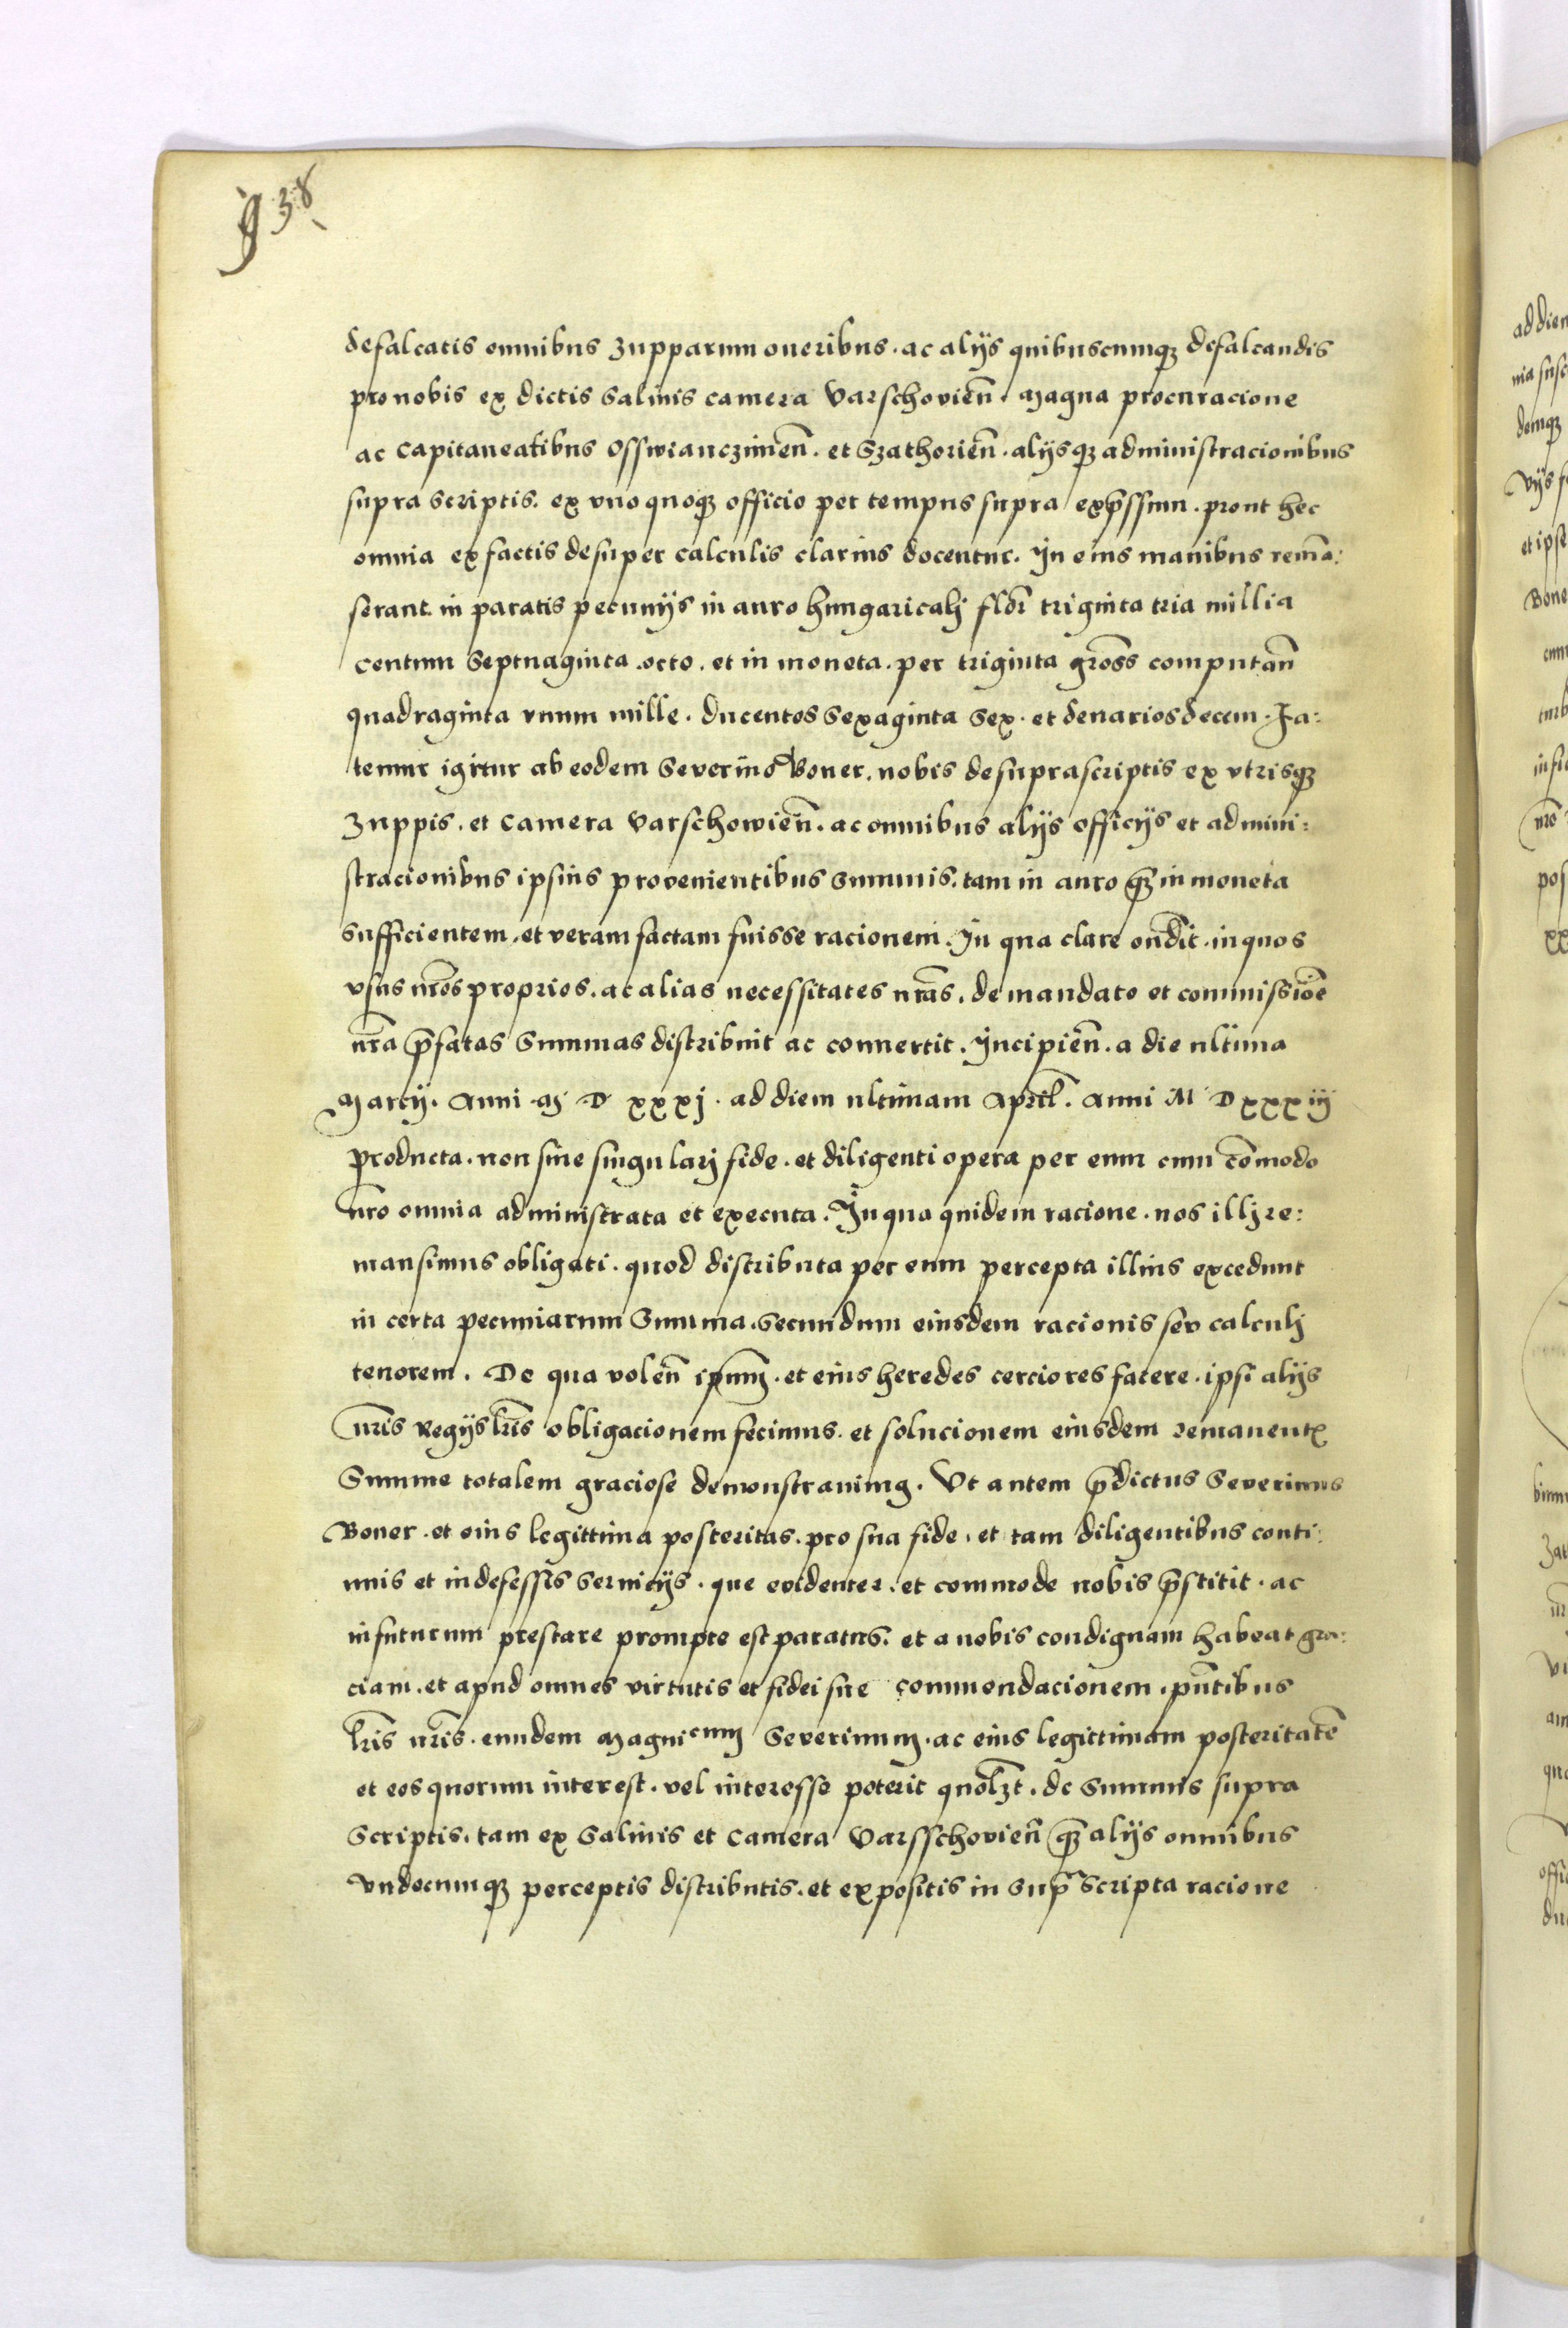 938
defalcatis omnibus zupparum oneribus . ac alijs quibuscumqꝫ defalcandis
pro nobis ex dictis Salinis camera Varschovien̄ . Magna procuracione
ac capitaneatibus Osswiancziмen̄ . et Szathorien̄ . alijsqꝫ administracionibus
supra scriptis . ex vno quoqꝫ officio per tempus supra exp̄ssum . prout hec
omnia ex factis desuper calculis clarius docentur . In eius manibus remā:
serant in paratis pecunijs in auro hungaricalj flor̄ triginta tria millia
centum Septuaginta octo . et in moneta . per triginta gross̄ computan̄
quadraginta vnum mille . ducentos Sexaginta Sex . et denarios decem . Fa:
temur igitur ab eodem Severino Boner . nobis de suprascriptis ex vtrisqꝫ
zuppis . et camera Varschowien̄ . ac omnibus alijs officijs et admini:
stracionibus ipsius provenientibus Summis . tam in auro qꝫ in moneta
Sufficientem . et veram factam fuisse racionem . In qua clare ond̄it . in quos
vsus nr̄os proprios . ac alias necessitates nr̄as . de mandato et commissiōe
nr̄a p̄fatas Summas distribuit ac convertit . Incipien̄ . a die ultima
Marcij . Anni M D xxxj . ad diem ultimam April̄ . Anni M D xxx iij
producta . non sine singularj fide . et diligenti opera per eum cum cōmodo
nr̄o omnia administrata et executa . In qua quidem racione . nos illj re:
mansimus obligati . quod distributa per eum percepta illius excedunt
in certa pecuniarum Summa . Secundum eiusdem racionis seu calculj
tenorem . De qua volen̄ ip̄um . et eius heredes cerciores facere . ipsi alijs
nr̄is Regijs lr̄is obligacionem fecimus . et solucionem eiusdem remanentꝭ
Summe totalem graciose demonstravimꝰ . Vt autem p̄dictus Severinus
Boner . et eius legittima posteritas . pro sua fide . et tam diligentibus conti:
nuis et indefessis Servicijs . que evidenter . et commode nobis p̄stitit . ac
in futurum prestare prompte est paratus . et a nobis condignam habeat gra:
ciam . et apud omnes virtutis et fidei sue commendacionem . pn̄tibus
lr̄is nr̄is . eundem Magnicum Severinum . ac eius legittimam posteritatē
et eos quorum interest . vel interesse poterit quolꝫt . de Summis supra
Scriptis . tam ex Salinis et camera Varsschovien̄ qꝫ alijs omnibus
vndecumqꝫ perceptis distributis . et expositis in Sup̄ Scripta racione